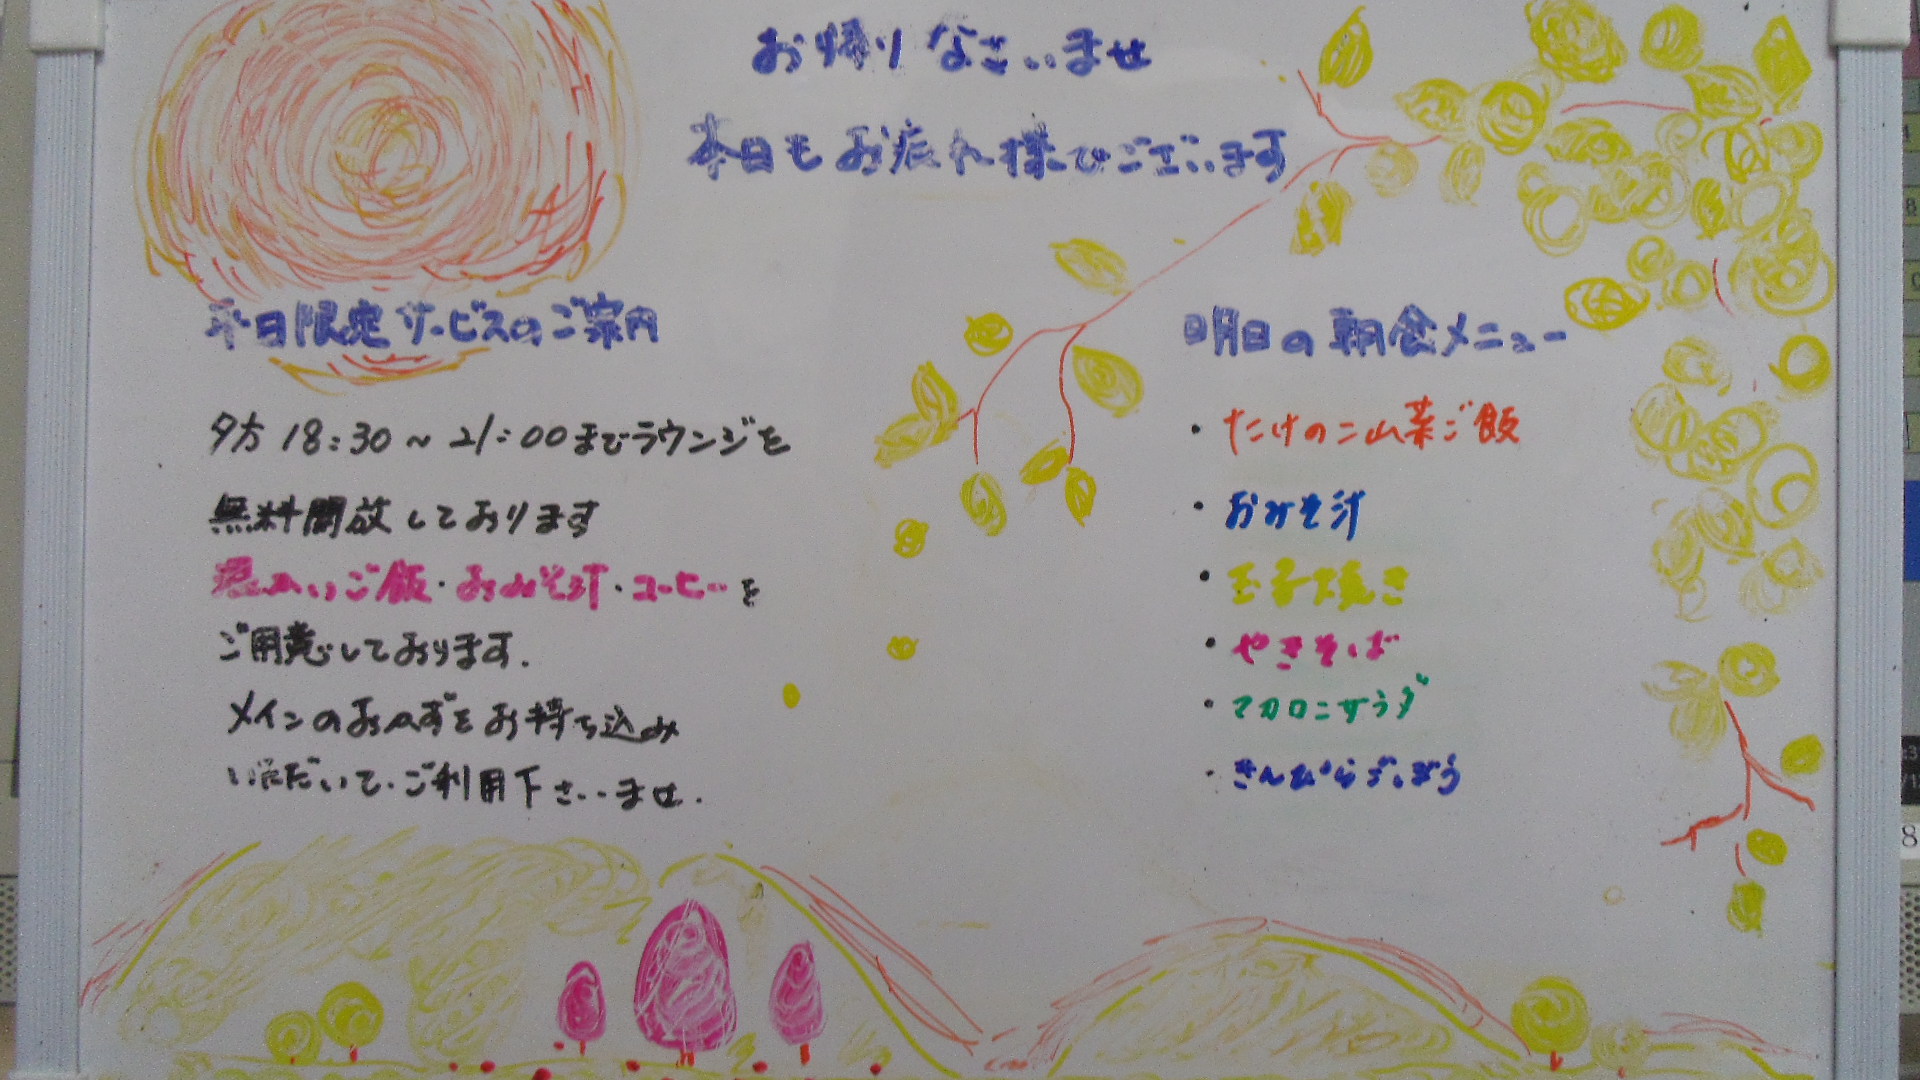 お帰りなさいませ
本日もお疲れ様でございます
平日限定サービスのご案内
夕方 18:30～21:00までラウンジを
無料開放しております
温かいご飯・おみそ汁・コーヒーを
ご用意しております.
メインのおかずをお持ち込み
いただいて、ご利用下さいませ.
明日の朝食メニュー
・たけのこ山菜ご飯
・おみそ汁
・玉子焼き
・やきそば
・マカロニサラダ
・きんぴらごぼう